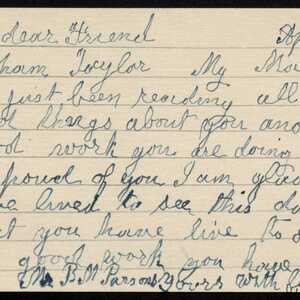 dear Friend Ap
ham Taylor My Mo
just been reading all
things about you and
work you are doing
proud of you I am glad
lived to see this d
you have live to s
good work you have
Mr B N Parsons yours with